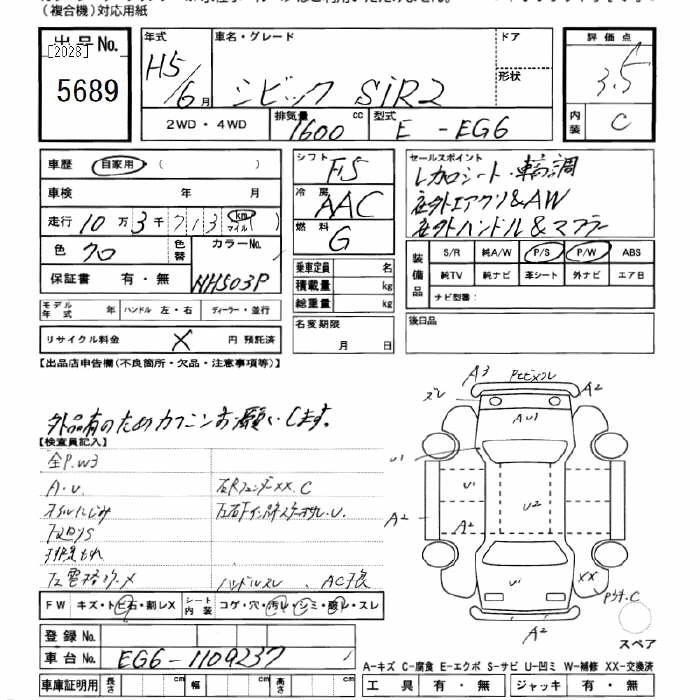 (複合機)対応用紙
出品No.
[2028]
5689
年式
H5/6月
車名・グレード
シビック SiR2
ドア
形状
評価点
3.5
内装
C
2WD・4WD
排気量
1600
cc
型式
E-EG6
車歴
自家用 ( )
車検 年 月
走行 10万3千713 km マイル
色 クロ
色替
カラーNo.
NH503P
保証書 有・無
シフト F5
冷房 AAC
燃料 G
乗車定員 名
積載量 kg
総重量 kg
セールスポイント
レカロシート・車高調
社外エアクリ&AW
社外ハンドル&マフラー
装備品
S/R 純A/W P/S P/W ABS
純TV 純ナビ 革シート 外ナビ エア日
ナビ型番:
モデル年式 年 ハンドル 左・右 ディーラー・並行
リサイクル料金 X 円 預託済
名変期限 月 日
後日品
【出品店申告欄(不良箇所・欠品・注意事項等)】
外品有のためカクニンお願いします。
【検査員記入】
全P.W3
A・U
オイルにじみ
下廻りS
排気もれ
ハンドルスレ
AC不良
FW キズ・トビ石・割レX シート内装 コゲ・穴・汚レ・シミ・破レ・スレ
登録No.
車台No. EG6-1109237
車庫証明用 長さ cm 幅 cm 高さ cm
A3
ズレ
A2
AU1
U1
U1
U2
A2
A2
U1
XX
C
A2
スペア
A-キズ C-腐食 E-エクボ S-サビ U-凹ミ W-補修 XX-交換済
工具 有・無 ジャッキ 有・無